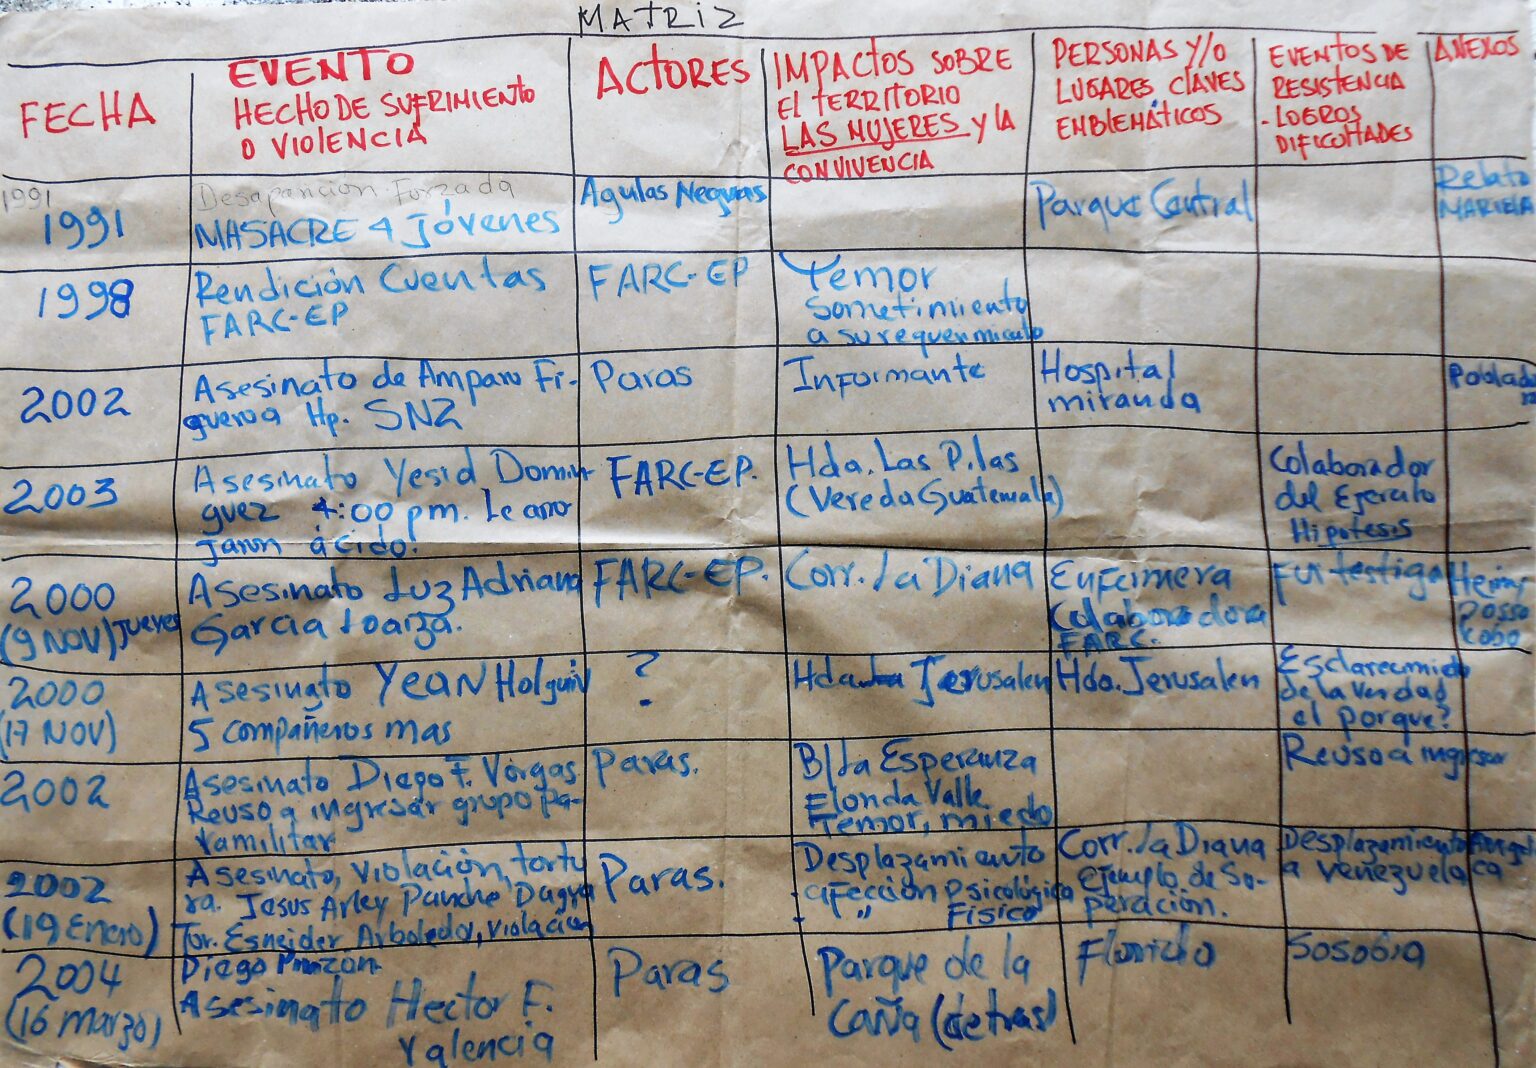 MATRIZ
FECHA
EVENTO
HECHO DE SUFRIMIENTO
O VIOLENCIA
ACTORES
IMPACTOS SOBRE
El TERRITORIO
LAS MUJERES y lA
CONVIVENCIA
PERSONAS Y/O
LUGARES CLAVES
EMBLEMÁTICOS
EVENTOS DE
RESISTENCIA
- LOGROS
DIFICULTADES
ANEXOS
1991
1991
Desaparición Forzada
MASACRE 4 Jóvenes
Agulas Negras
Parque Central
Relato
MARIELA
1998
Rendición Cuentas
FARC-EP
FARC-EP
Temor
Sometimiento
a su requerimiento
2002
Asesinato de Amparo Fi-
gueroa Hp. SNZ
Paras
Informante
Hospital
miranda
2003
Asesinato Yesid Domin-
guez 4:00 pm. Le arro
jaron ácido!
FARC-EP.
Hda. Las Pilas
(Vereda Guatemala)
Colaborador
del Ejercito
Hipotesis
2000
(9 NOV) jueves
Asesinato Luz Adriana
Garcia Loaiza.
FARC-EP.
Corr. La Diana
Enfermera
Colaboradora
FARC.
Fui testigo
Posso
Cobo
2000
(17 NOV)
Asesinato Yean Holguin
5 compañeros mas
?
Hda Jerusalen
Hda. Jerusalen
Esclarecimido
de la verdad
el porque?
2002
Asesinato Diego F. Vargas
Reuso a ingresar grupo pa-
ramilitar
Paras.
B/La Esperanza
Elonda Valle
Temor, miedo
Reuso a ingresar
2002
(19 Enero)
Asesinato, violación, tortu
ra. Jesus Arley Panche Dagua
Tor. Esneider Arboleda, violación
Paras.
Desplazamiento
- afección Psicológica
- " Fisico
Corr. La Diana
ejemplo de So-
peración.
Desplazamiento
a venezuela
2004
(16 marzo)
Diego Pinzón
Asesinato Hector F.
Valencia
Paras
Parque de la
Caña (detras)
Florida
Sosobra